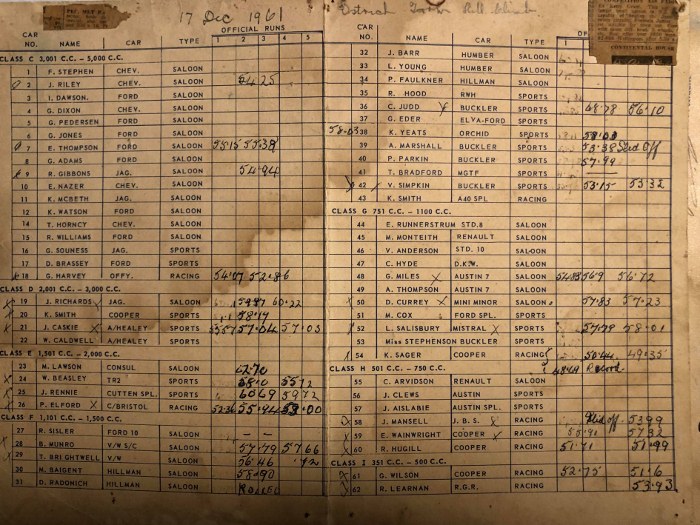 17 Dec 1961
OFFICIAL RUNS
CAR NO. NAME CAR TYPE 1 2 3 4 5
CLASS C 3,001 C.C. - 5,000 C.C.
1 F. STEPHEN CHEV. SALOON
2 J. RILEY CHEV. SALOON 54.25
3 I. DAWSON. FORD SALOON
4 G. DIXON CHEV. SALOON
5 G. PEDERSEN FORD SALOON
6 G. JONES FORD SALOON
7 E. THOMPSON FORD SALOON 55.15 55.38
8 G. ADAMS FORD SALOON
9 R. GIBBONS JAG. SALOON 54.94
10 E. NAZER CHEV. SALOON
11 K. McBETH JAG. SALOON
12 K. WATSON FORD SALOON
14 T. HORNCY CHEV. SALOON
15 R. WILLIAMS FORD SALOON
16 G. SOUNESS JAG. SPORTS
17 D. BRASSEY FORD SPORTS
18 G. HARVEY OFFY. RACING 54.07 52.86
CLASS D 2,001 C.C. - 3,000 C.C.
19 J. RICHARDS X JAG. SALOON 60.22
20 K. SMITH COOPER SPORTS 58.19
21 J. CASKIE X A/HEALEY SPORTS 57.04 57.03
22 W. CALDWELL A/HEALEY SPORTS
CLASS E 1,501 C.C. - 2,000 C.C.
23 M. LAWSON CONSUL SALOON 62.70
24 W. BEASLEY TR2 SPORTS 58.0 55.12
25 J. RENNIE CUTTEN SPL. SPORTS 60.69 59.72
26 P. ELFORD X C/BRISTOL RACING 52.36 55.94 53.00
CLASS F 1,101 C.C. - 1,500 C.C.
27 R. SISLER FORD 10 SALOON
28 B. MUNRO V/W S/C SALOON 57.79 57.66
29 T. BRIGHTWELL V/W SALOON 56.46
30 M. BAIGENT HILLMAN SALOON 58.90
31 D. RADONICH HILLMAN SALOON Rolled
CAR NO. NAME CAR TYPE
32 J. BARR HUMBER SALOON
33 L. YOUNG HUMBER SALOON
34 P. FAULKNER HILLMAN SALOON
35 R. HOOD RWH SPORTS
36 C. JUDD BUCKLER SPORTS 68.78 56.10
37 G. EDER ELVA-FORD SPORTS
58.03 38 K. YEATS ORCHID SPORTS 58.03
39 A. MARSHALL BUCKLER SPORTS 55.38
40 P. PARKIN BUCKLER SPORTS 57.99
41 T. BRADFORD MGTF SPORTS
42 V. SIMPKIN BUCKLER SPORTS 53.15 53.32
43 K. SMITH A40 SPL RACING
CLASS G 751 C.C. - 1100 C.C.
44 E. RUNNERSTRUM STD.8 SALOON
45 M. MONTEITH RENAULT SALOON
46 V. ANDERSON STD. 10 SALOON
47 C. HYDE D.K.W. SALOON
48 G. MILES X AUSTIN 7 SALOON 56.9 56.72
49 A. THOMPSON AUSTIN 7 SALOON
50 D. CURREY X MINI MINOR SALOON 57.83 57.23
51 M. COX FORD SPL. SPORTS
52 L. SALISBURY MISTRAL X SPORTS 57.78 58.01
53 Miss STEPHENSON BUCKLER SPORTS
54 K. SAGER COOPER RACING 50.44 49.35
CLASS H 501 C.C. - 750 C.C. 48.49 Record
55 C. ARVIDSON RENAULT SALOON
56 J. CLEWS AUSTIN SPORTS
57 J. AISLABIE AUSTIN SPL. SPORTS
58 J. MANSELL J.B.S. X RACING 53.99
59 E. WAINWRIGHT COOPER X RACING 57.32
60 R. HUGILL COOPER RACING 51.71 51.99
CLASS I 351 C.C. - 500 C.C.
61 G. WILSON COOPER RACING 52.75 51.6
62 R. LEARNAN R.G.R. RACING 53.93